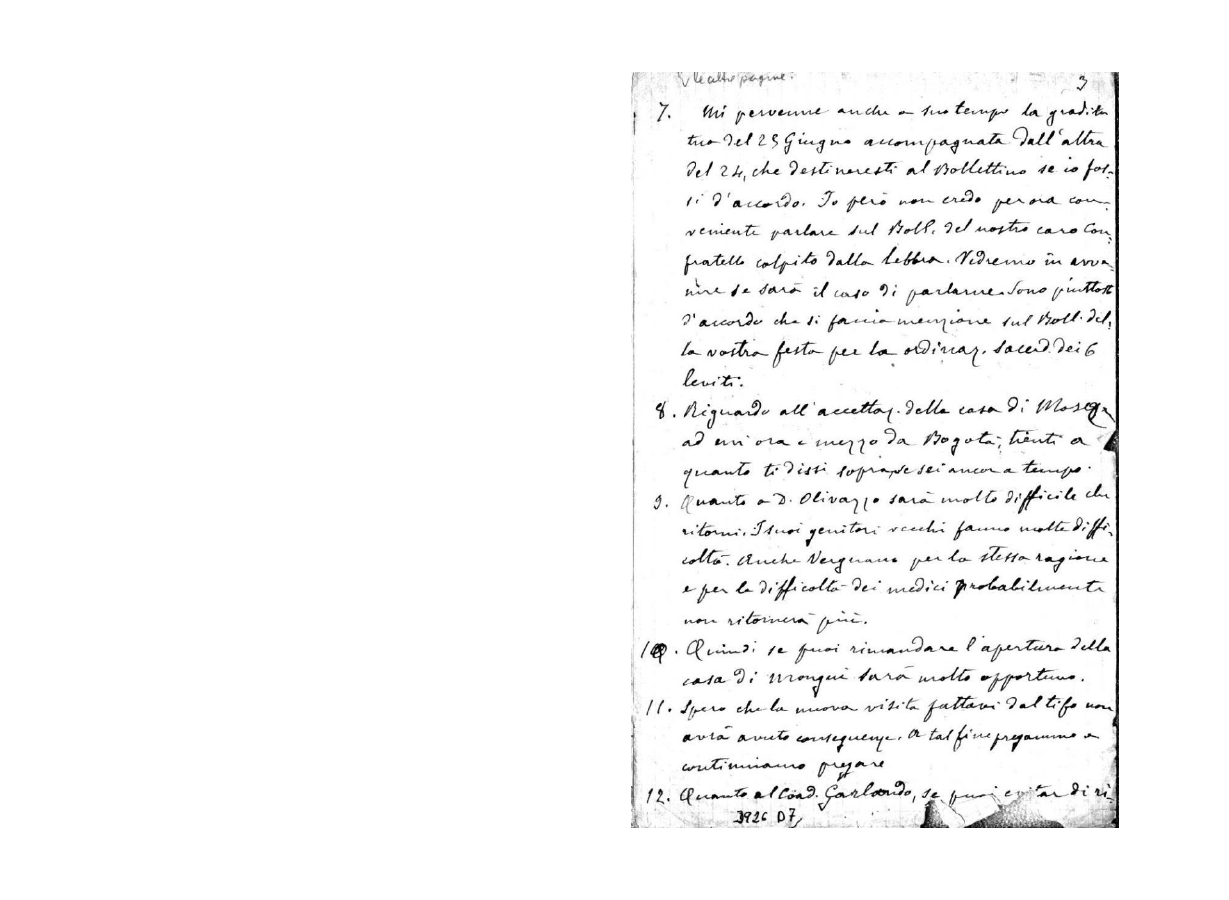 v. le altre pagine. 3
7. Mi pervenne anche a suo tempo la gradita
tua del 25 Giugno accompagnata dall'altra
del 24, che destineresti al Bollettino se io fos-
si d'accordo. Io però non credo per ora con-
veniente parlare sul Boll. del nostro caro Con-
fratello colpito dalla lebbra. Vedremo in avve-
nire se sarà il caso di parlarne. Sono piuttosto
d'accordo che si faccia menzione sul Boll. del-
la vostra festa per la ordinaz. sacerd. dei 6
leviti.
8. Riguardo all'accettaz. della casa di Mosq
ad un'ora e mezzo da Bogotà, tienti a
quanto ti dissi sopra, se sei ancor a tempo.
9. Quanto a D. Olivazzo sarà molto difficile che
ritorni. I suoi genitori vecchi fanno molte diffi-
coltà. Anche Vergnano per la stessa ragione
e per le difficoltà dei medici probabilmente
non ritornerà più.
10. Quindi se puoi rimandare l'apertura della
casa di Mongui sarà molto opportuno.
11. Spero che la nuova visita fattavi dal tifo non
avrà avuto conseguenze. A tal fine pregammo e
continuiamo pregare
12. Quanto al Coad. Garlando, se puoi evitar di ri-
3926 D7